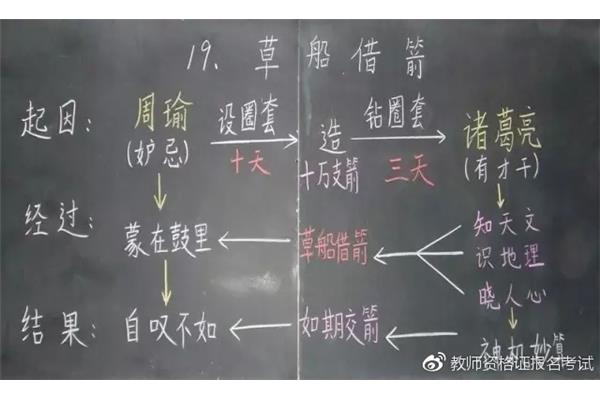 19、草船借箭
起因： 周瑜 设圈套 造 钻圈套 诸葛亮
(妒忌) 十天 十万支箭 三天 (有才干)
知天文
经过： 蒙在鼓里 草船借箭 识地理
晓人心
结果： 自叹不如 如期交箭 神机妙算
教师资格证报名考试